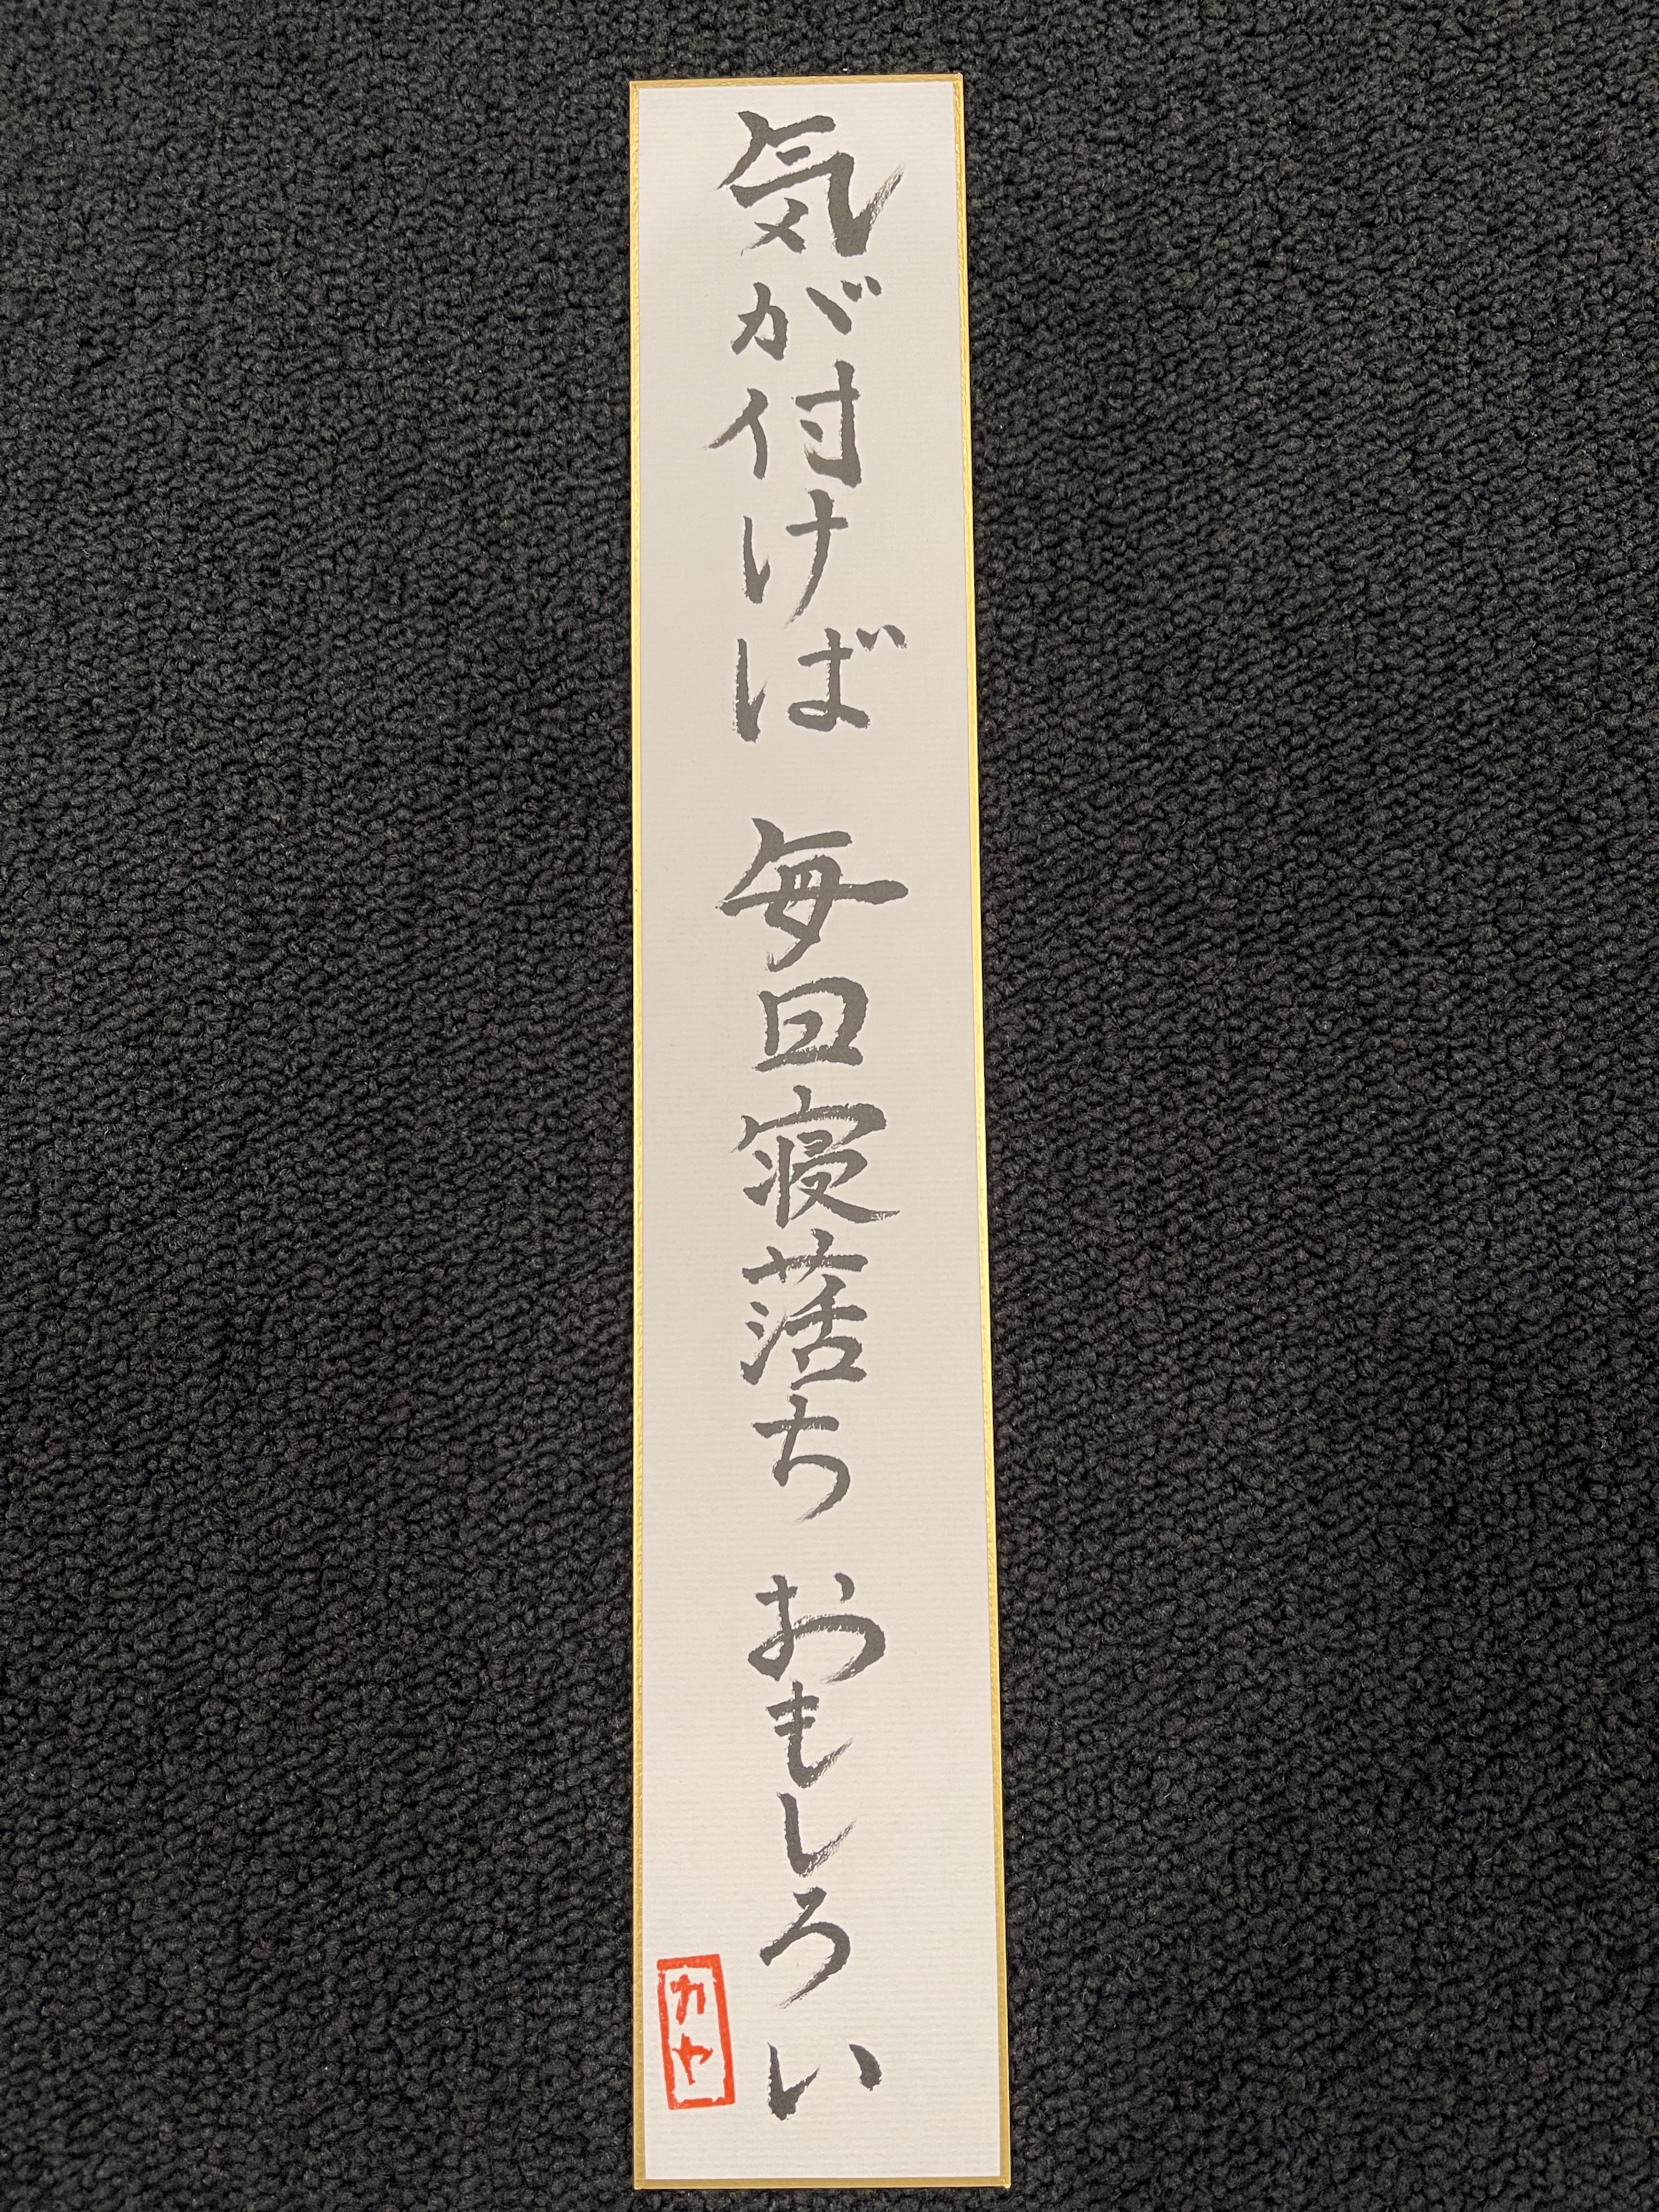 気が付けば 毎日寝落ち おもしろい
カヤ